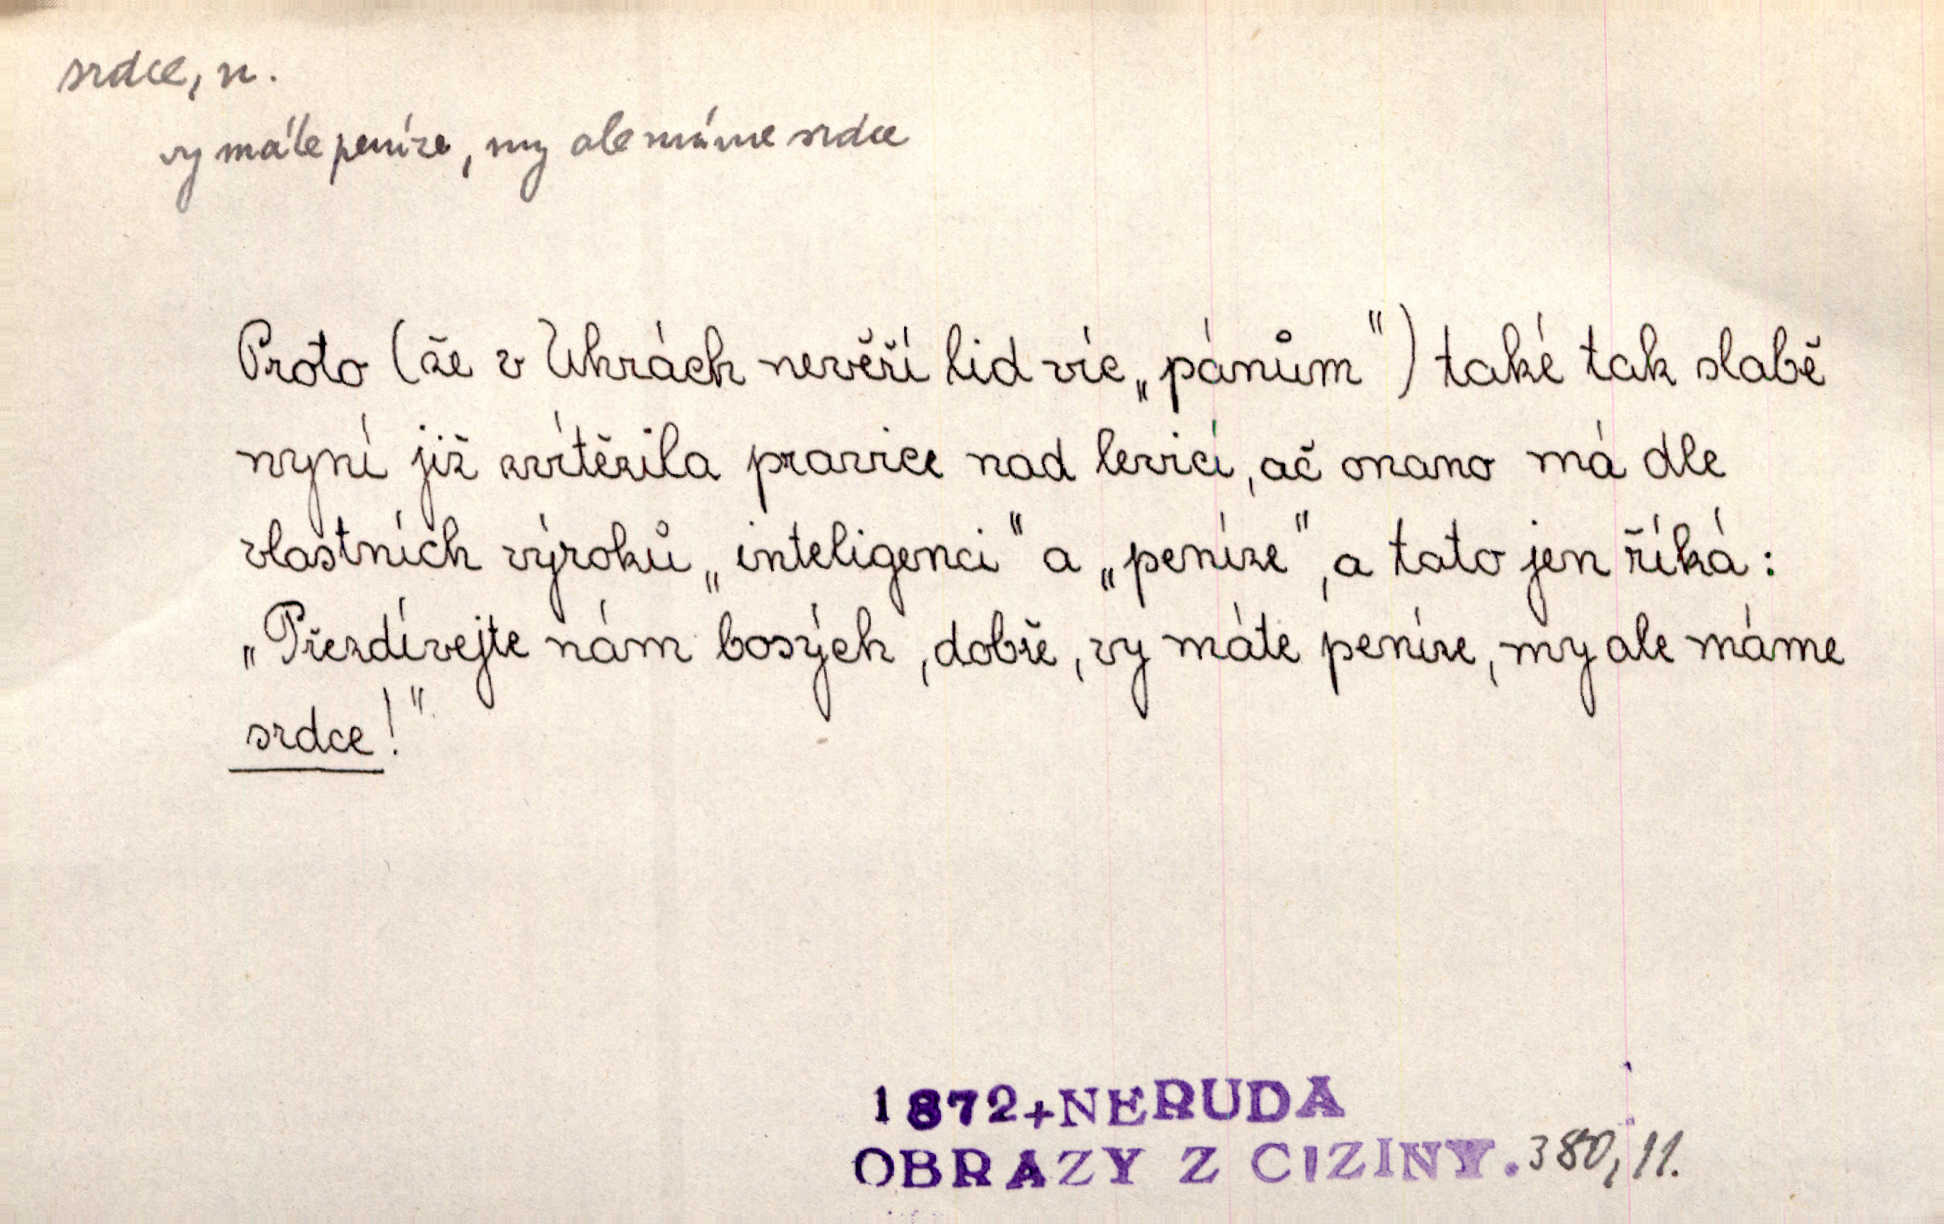 srdce, n.
vy máte peníze, my ale máme srdce
Proto (že v Uhrách nevěří lid víc „pánům“) také tak slabě
nyní již zvítězila pravice nad levicí, ač onano má dle
vlastních výroků „inteligenci“ a „peníze“, a tato jen říká:
„Přezdívejte nám bosých, dobře, vy máte peníze, my ale máme
srdce!“
1872+NERUDA
OBRAZY Z CIZINY. 380, 11.